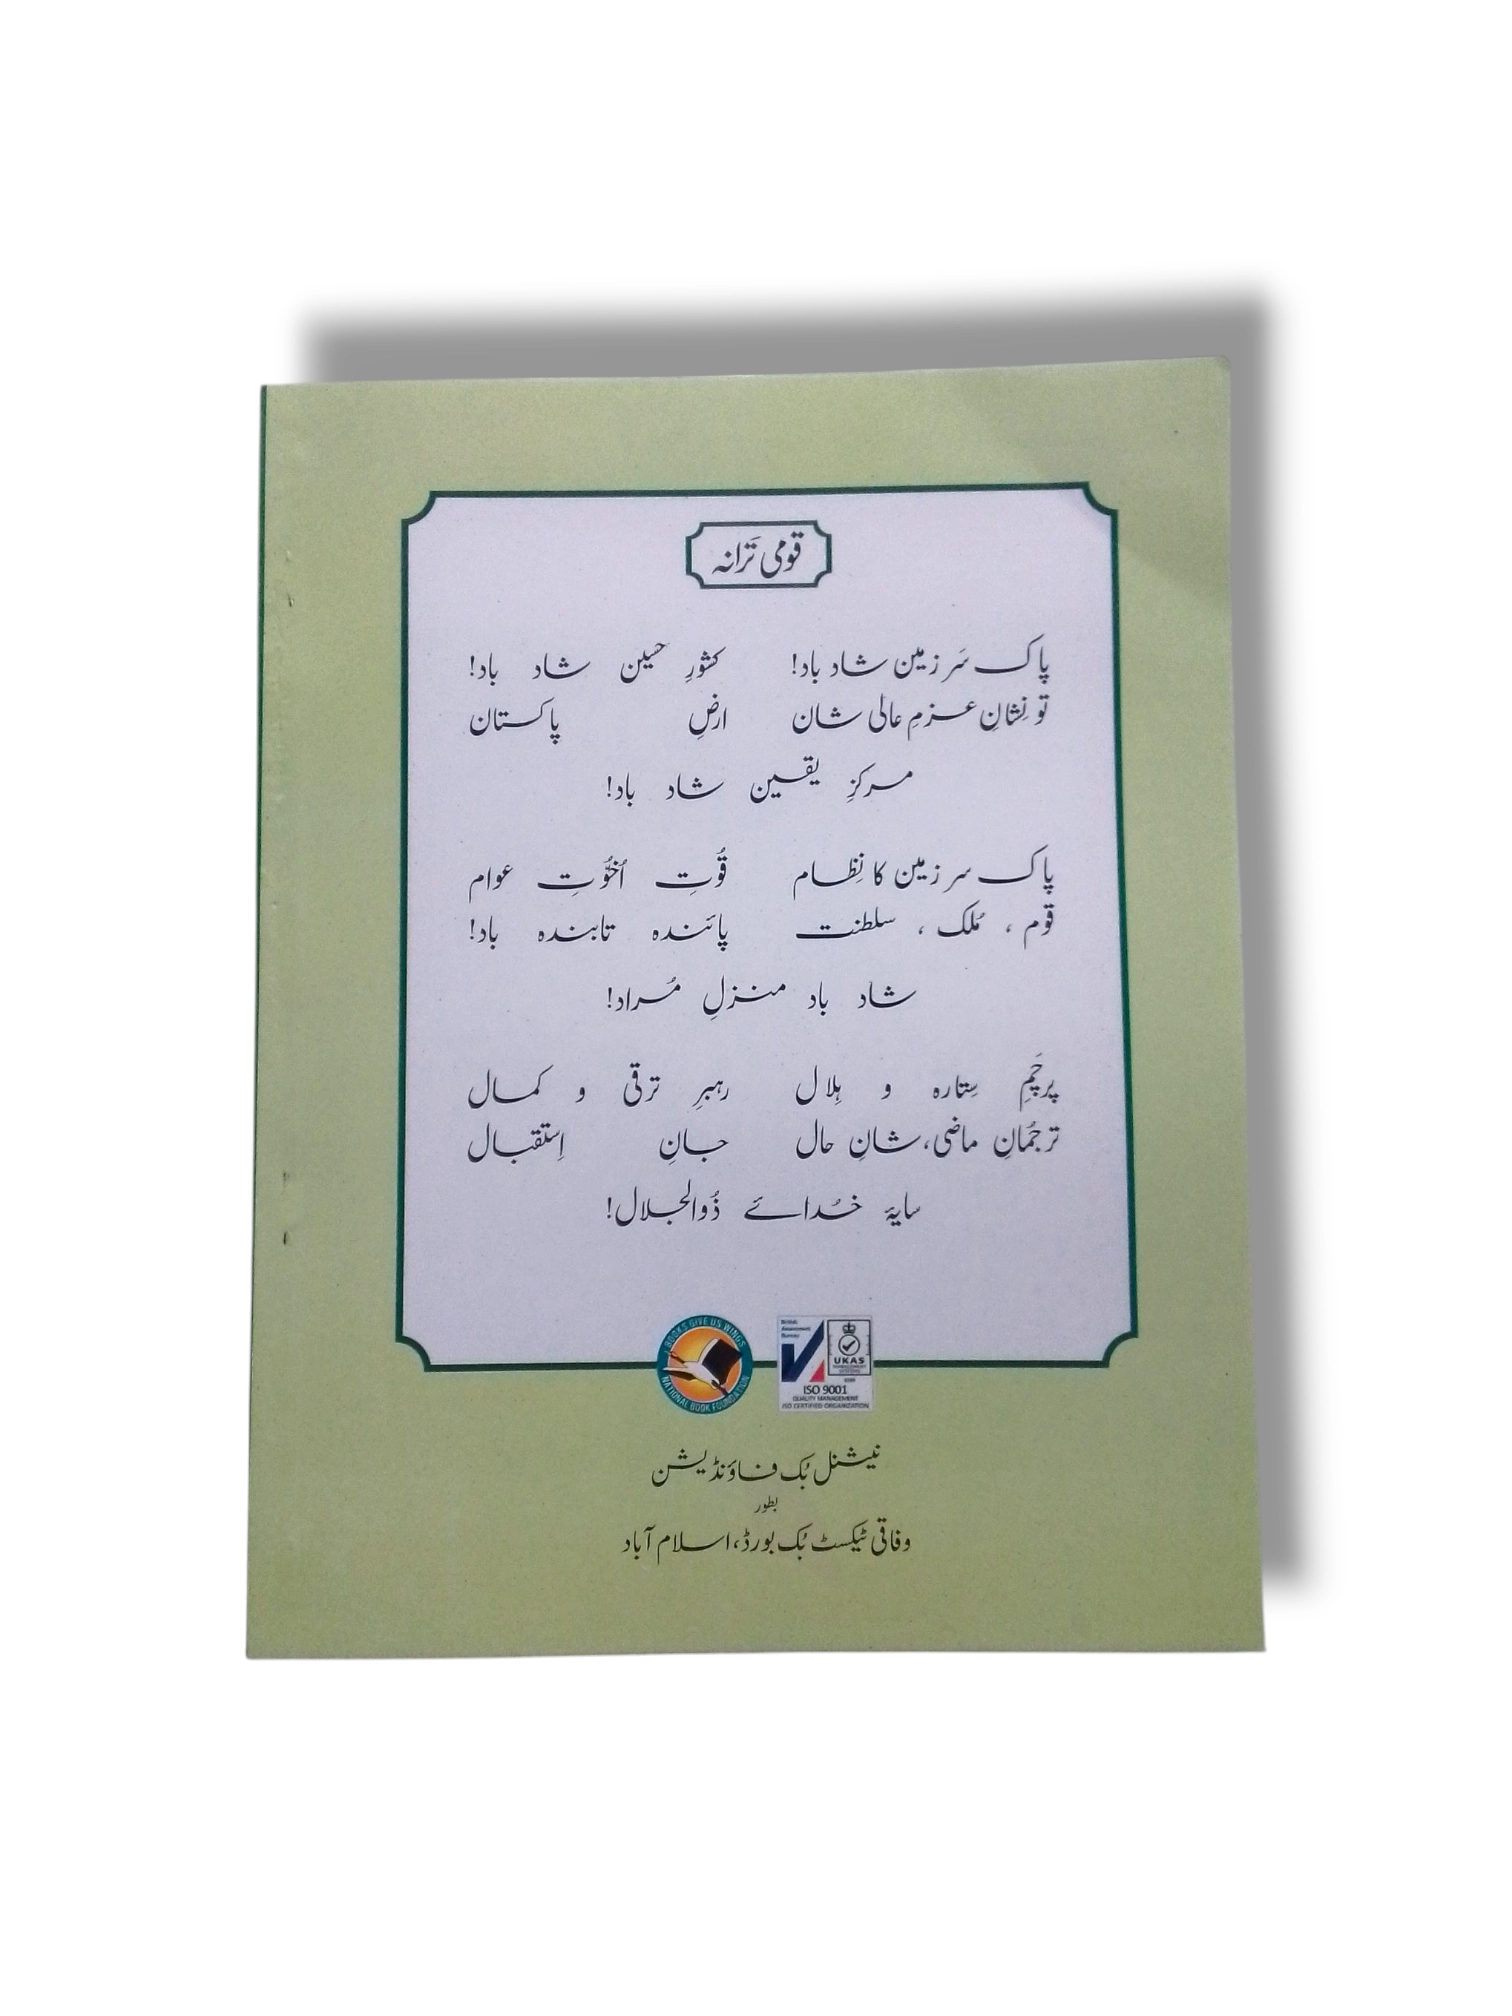 قومی تَرانہ
پاک سَرزمین شاد باد! کشورِ حسین شاد باد!
تو نِشانِ عزمِ عالی شان ارضِ پاکستان
مرکزِ یقین شاد باد!
پاک سرزمین کا نِظام قُوتِ اُخوُّتِ عوام
قوم ، مُلک ، سلطنت پائندہ تابندہ باد!
شاد باد منزلِ مُراد!
پرچَمِ سِتارہ و ہِلال رہبرِ ترقی و کمال
ترجُمانِ ماضی، شانِ حال جانِ اِستقبال
سایۂ خُدائے ذُوالجلال!
BOOKS GIVE US WINGS
NATIONAL BOOK FOUNDATION
British
Assessment
Bureau
UKAS
MANAGEMENT
SYSTEMS
ISO 9001
QUALITY MANAGEMENT
ISO CERTIFIED ORGANIZATION
نیشنل بُک فاؤنڈیشن
بطور
وفاقی ٹیکسٹ بُک بورڈ، اسلام آباد